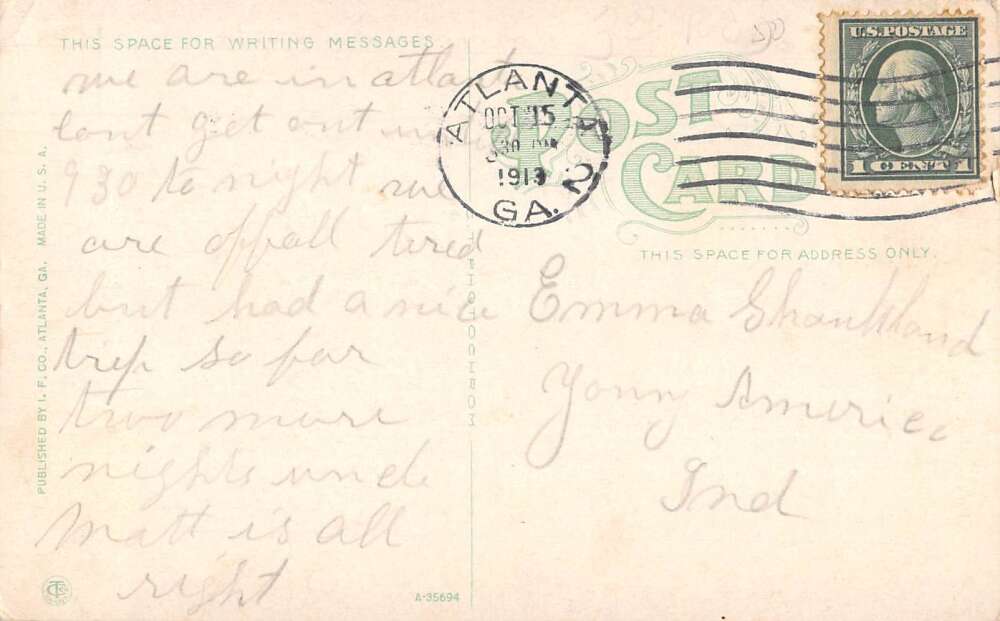 THIS SPACE FOR WRITING MESSAGES
we are in atlant
cant get out un
930 to night we
are offall tired
but had a nice
trip so far
two more
nights uncle
Matt is all
right
PUBLISHED BY I. F. CO., ATLANTA, GA. MADE IN U. S. A.
A-35694
POST
CARD
THIS SPACE FOR ADDRESS ONLY.
ATLANTA
OCT 15
330 PM
1913
2
GA.
U.S. POSTAGE
1 CENT 1
Emma
Young America
Ind